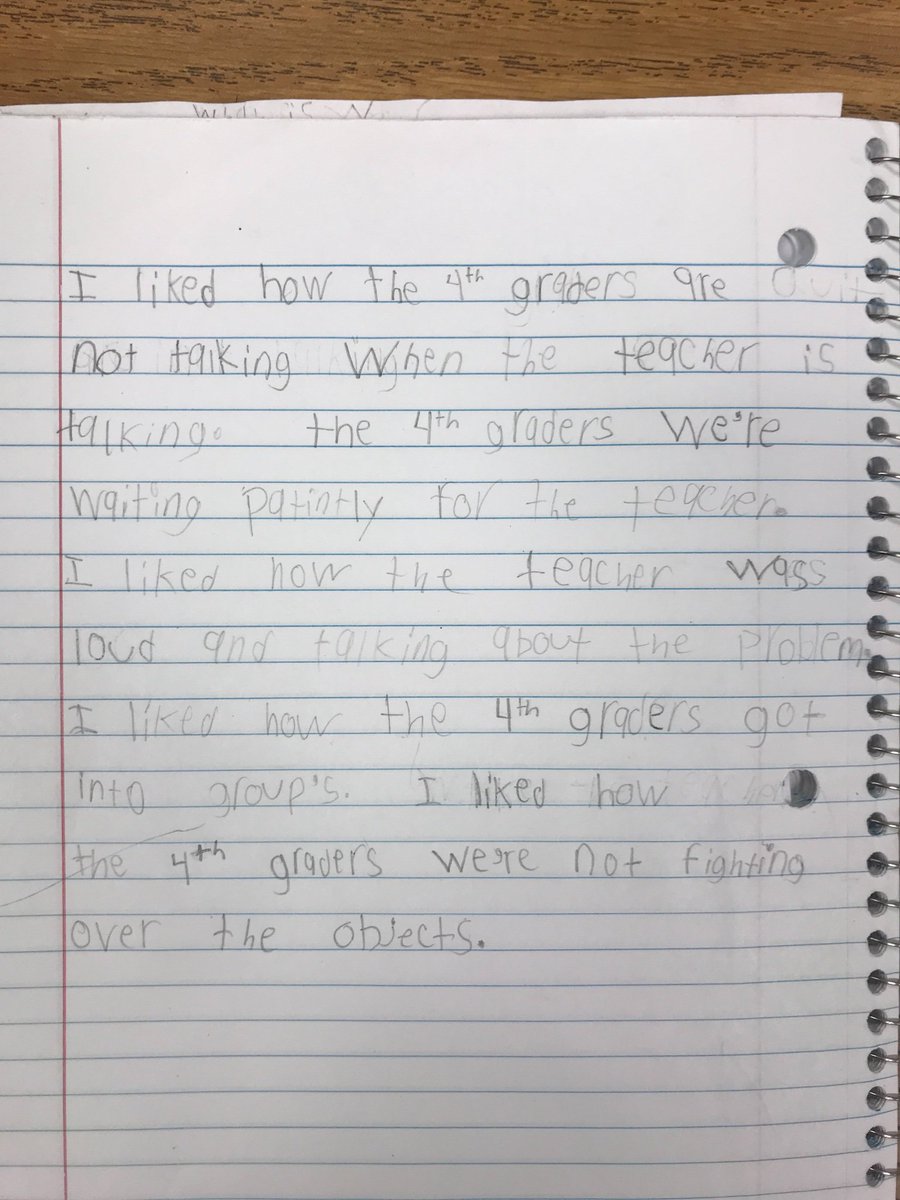 I liked how the 4th graders are
not talking When the teacher is
talking. the 4th graders we're
waiting patintly for the teacher.
I liked how the teacher wass
loud and talking about the problem.
I liked how the 4th graders got
into group's. I liked how
the 4th graders we're not fighting
over the objects.